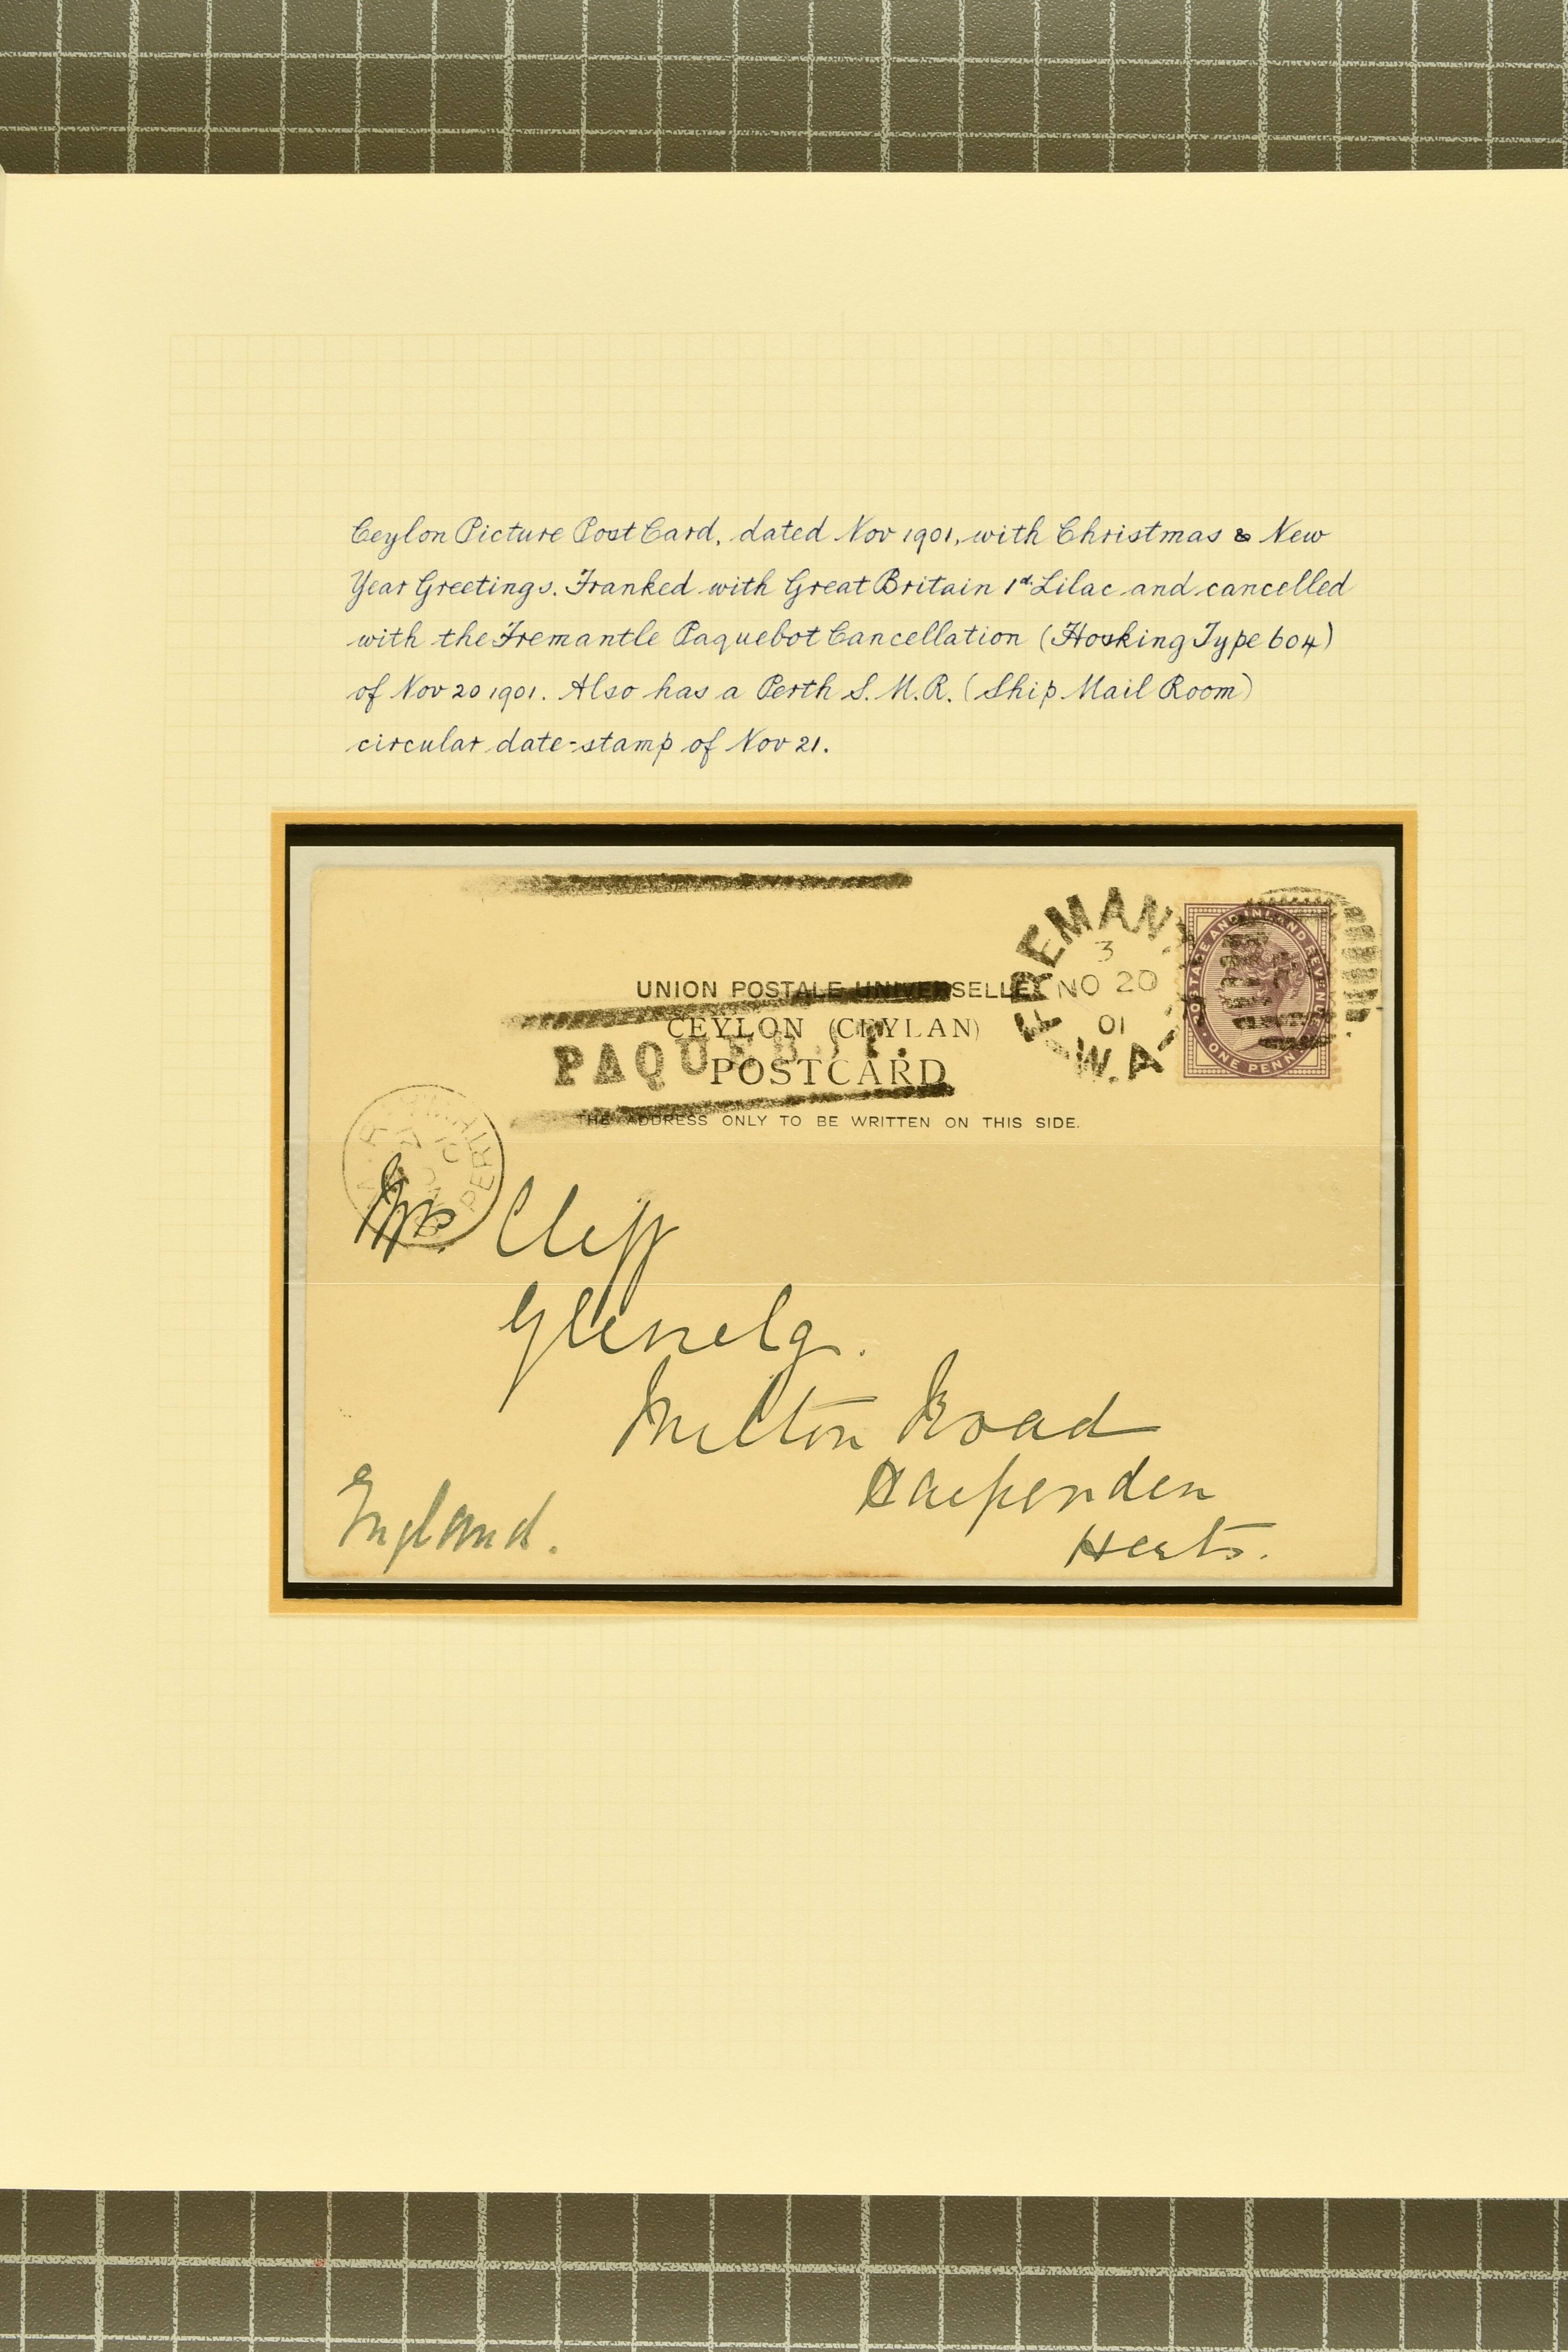 Ceylon Picture Post Card, dated Nov 1901, with Christmas & New
Year Greetings. Franked with Great Britain 1d. Lilac and cancelled
with the Fremantle Paquebot Cancellation (Hosking Type 604)
of Nov 20 1901. Also has a Perth S.M.R. (Ship Mail Room)
circular date-stamp of Nov 21.
UNION POSTALE UNIVERSELLE
CEYLON (CEYLAN)
PAQUEBOT.
POSTCARD
THE ADDRESS ONLY TO BE WRITTEN ON THIS SIDE.
FREMAN
3
NO 20
01
W.A.
POSTAGE AND INLAND REVENUE
ONE PENNY
PER
Cliff
Glenelg.
Milton Road
Harpenden
Herts.
England.